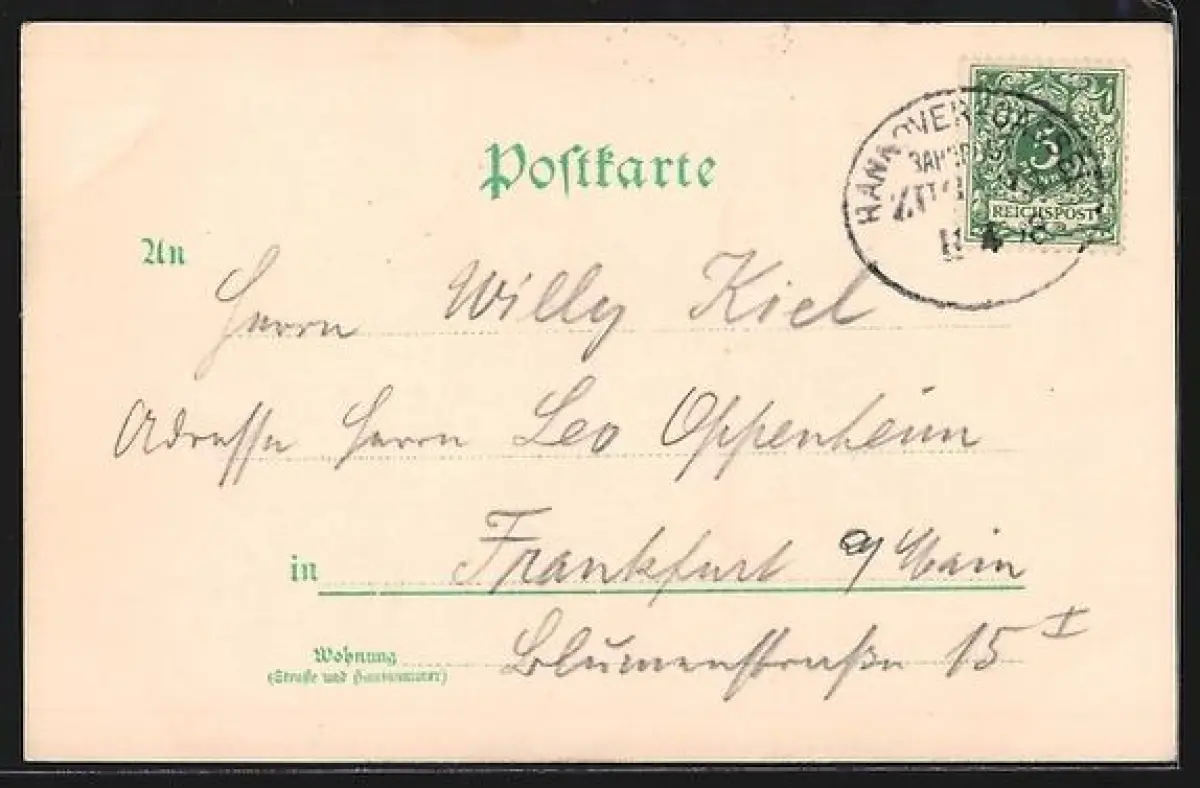 Postkarte
5
REICHSPOST
HANNOVER
An
Herrn Willy Kiel
Adresse Herrn Leo Oppenheim
in Frankfurt a/Main
Wohnung
(Straße und Hausnummer)
Blumenstraße 15 I